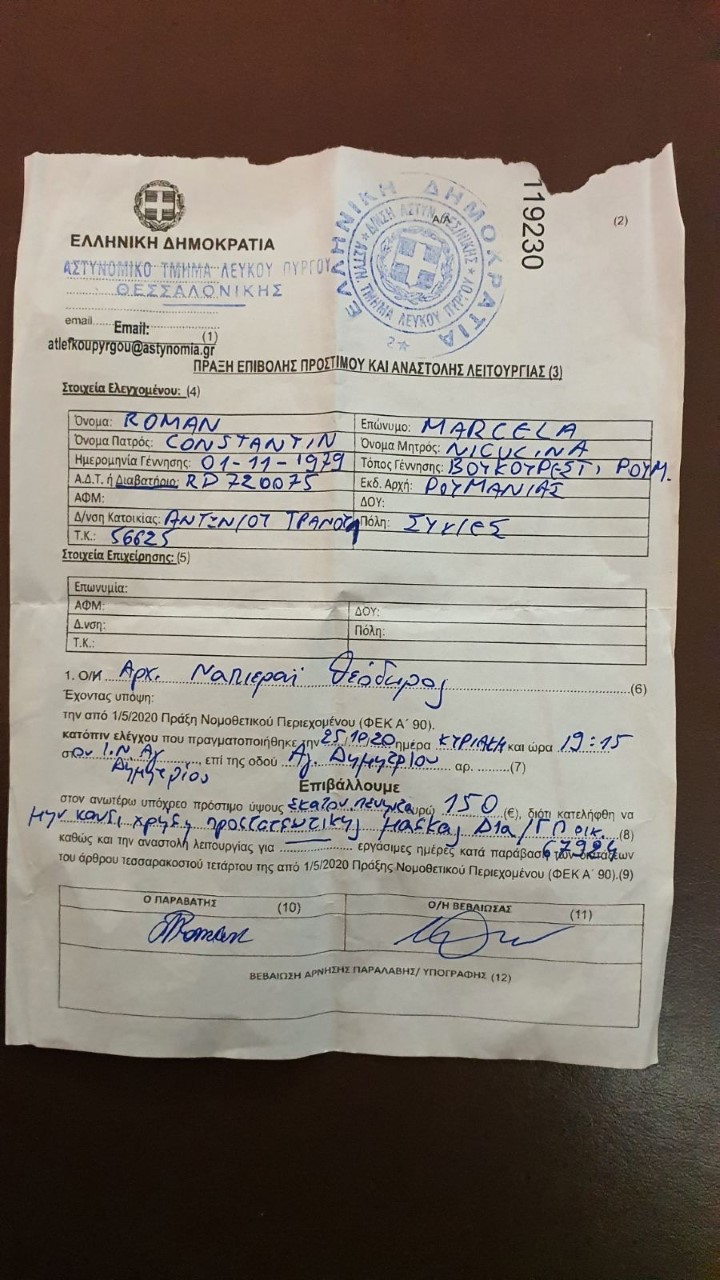 119230
(2)
Α/Α
ΕΛΛΗΝΙΚΗ ΔΗΜΟΚΡΑΤΙΑ
ΕΛΛΗΝΙΚΗ ΔΗΜΟΚΡΑΤΙΑ
ΑΣΤΥΝ. ΤΜΗΜΑ ΛΕΥΚΟΥ ΠΥΡΓΟΥ
ΑΣΤΥΝΟΜΙΚΟ ΤΜΗΜΑ ΛΕΥΚΟΥ ΠΥΡΓΟΥ
ΘΕΣΣΑΛΟΝΙΚΗΣ
email
Email:
(1)
atlefkoupyrgou@astynomia.gr
ΠΡΑΞΗ ΕΠΙΒΟΛΗΣ ΠΡΟΣΤΙΜΟΥ ΚΑΙ ΑΝΑΣΤΟΛΗΣ ΛΕΙΤΟΥΡΓΙΑΣ (3)
Στοιχεία Ελεγχομένου: (4)
Όνομα: ROMAN Επώνυμο: MARCELA
Όνομα Πατρός: CONSTANTIN Όνομα Μητρός: NICULINA
Ημερομηνία Γέννησης: 01-11-1979 Τόπος Γέννησης: ΒΟΥΚΟΥΡΕΣΤΙ ΡΟΥΜ.
Α.Δ.Τ. ή Διαβατήριο: RD 720075 Εκδ. Αρχή: ΡΟΥΜΑΝΙΑΣ
ΑΦΜ: ΔΟΥ:
Δ/νση Κατοικίας: ΑΝΤΩΝΙΟΥ ΤΡΑΝΟΥ Πόλη: ΣΥΚΙΕΣ
Τ.Κ.: 56625
Στοιχεία Επιχείρησης: (5)
Επωνυμία:
ΑΦΜ: ΔΟΥ:
Δ.νση: Πόλη:
Τ.Κ.:
1. Ο/Η Αρχ. Θεόδωρος (6)
Έχοντας υπόψη:
την από 1/5/2020 Πράξη Νομοθετικού Περιεχομένου (ΦΕΚ Α΄ 90).
κατόπιν ελέγχου που πραγματοποιήθηκε την 25/10/20 ημέρα ΚΥΡΙΑΚΗ και ώρα 19:15
στον Ι.Ν. Αγ. Δημητρίου, επί της οδού Αγ. Δημητρίου αρ. (7)
Επιβάλλουμε
στον ανωτέρω υπόχρεο πρόστιμο ύψους εκατόν πενήντα ευρώ 150 (€), διότι κατελήφθη να
μην κάνει χρήση προστατευτικής μάσκας (8)
67924
καθώς και την αναστολή λειτουργίας για εργάσιμες ημέρες κατά παράβαση των διατάξεων
του άρθρου τεσσαρακοστού τετάρτου της από 1/5/2020 Πράξης Νομοθετικού Περιεχομένου (ΦΕΚ Α΄ 90).(9)
Ο ΠΑΡΑΒΑΤΗΣ (10) Ο/Η ΒΕΒΑΙΩΣΑΣ (11)
Roman
ΒΕΒΑΙΩΣΗ ΑΡΝΗΣΗΣ ΠΑΡΑΛΑΒΗΣ/ ΥΠΟΓΡΑΦΗΣ (12)